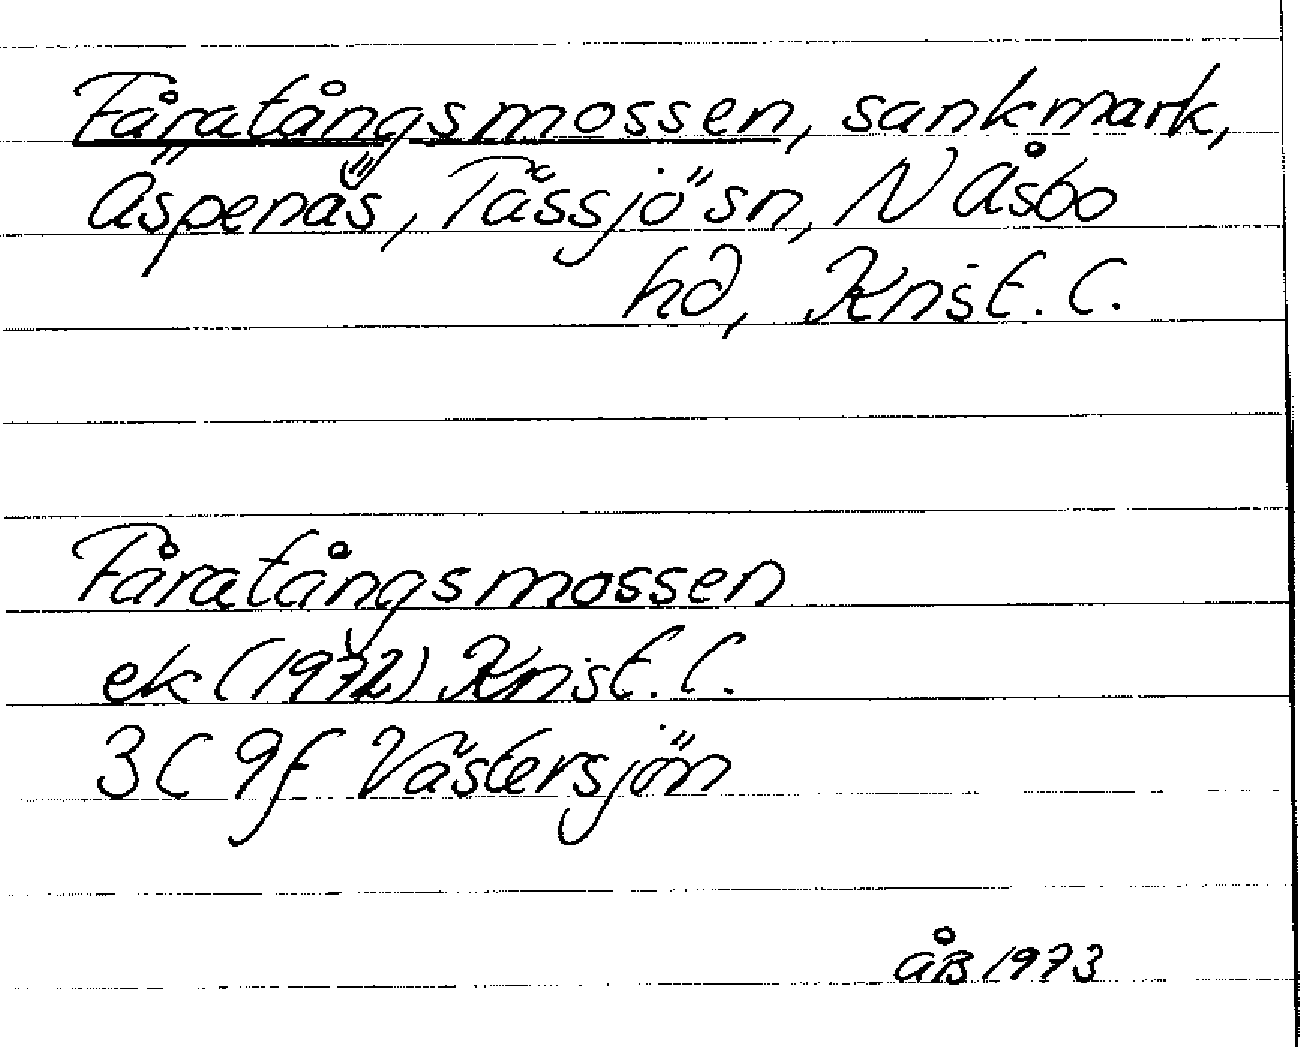 Fåratångsmossen, sankmark,
Äspenäs, Tåssjö sn, N Åsbo
hd, Krist. l.
Fåratångsmossen
ek (1972) Krist. l.
3C 9f Västersjön
åB 1973